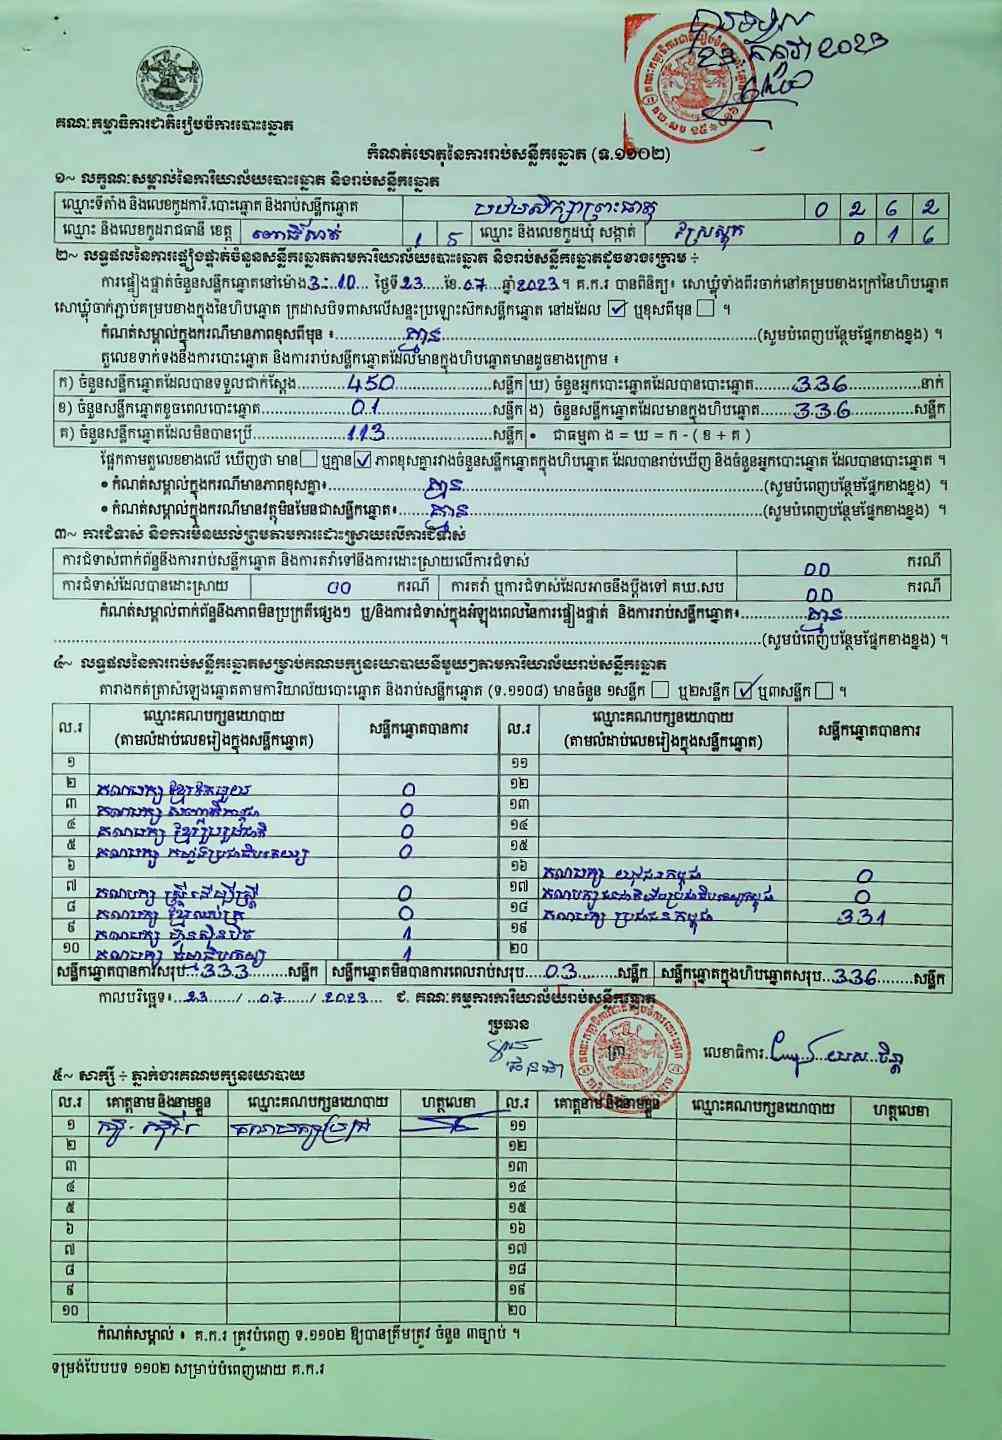 ២៣ កក្កដា 2023
គណៈកម្មាធិការជាតិរៀបចំការបោះឆ្នោត
កំណត់ហេតុនៃការរាប់សន្លឹកឆ្នោត (ទ.១១០២)
១~ លក្ខណៈសម្គាល់នៃការិយាល័យបោះឆ្នោត និងរាប់សន្លឹកឆ្នោត
ឈ្មោះទីតាំង និងលេខកូដការិ.បោះឆ្នោត និងរាប់សន្លឹកឆ្នោត បឋមសិក្សាព្រះធាតុ 0 2 6 2
ឈ្មោះ និងលេខកូដរាជធានី ខេត្ត ពោធិ៍សាត់ 1 5 ឈ្មោះ និងលេខកូដឃុំ សង្កាត់ 0 1 6
២~ លទ្ធផលនៃការផ្ទៀងផ្ទាត់ចំនួនសន្លឹកឆ្នោតតាមការិយាល័យបោះឆ្នោត និងរាប់សន្លឹកឆ្នោតដូចខាងក្រោម ÷
ការផ្ទៀងផ្ទាត់ចំនួនសន្លឹកឆ្នោតនៅម៉ោង 3:10 ថ្ងៃទី 23 ខែ 07 ឆ្នាំ 2023 ។ គ.ក.រ បានពិនិត្យ៖ សោឃ្លុំទាំងពីរចាក់នៅគម្របខាងក្រៅនៃហិបឆ្នោត
សោឃ្លុំចាក់ភ្ជាប់គម្របខាងក្នុងនៃហិបឆ្នោត ក្រដាសបិទពាសលើសន្ទះប្រឡោះស៊កសន្លឹកឆ្នោត នៅដដែល ☑ ឬខុសពីមុន ☐ ។
កំណត់សម្គាល់ក្នុងករណីមានភាពខុសពីមុន ៖ គ្មាន (សូមបំពេញបន្ថែមផ្នែកខាងខ្នង) ។
តួលេខទាក់ទងនឹងការបោះឆ្នោត និងការរាប់សន្លឹកឆ្នោតដែលមានក្នុងហិបឆ្នោតមានដូចខាងក្រោម ៖
ក) ចំនួនសន្លឹកឆ្នោតដែលបានទទួលជាក់ស្តែង 450 សន្លឹក ឃ) ចំនួនអ្នកបោះឆ្នោតដែលបានបោះឆ្នោត 336 នាក់
ខ) ចំនួនសន្លឹកឆ្នោតខូចពេលបោះឆ្នោត 01 សន្លឹក ង) ចំនួនសន្លឹកឆ្នោតដែលមានក្នុងហិបឆ្នោត 336 សន្លឹក
គ) ចំនួនសន្លឹកឆ្នោតដែលមិនបានប្រើ 113 សន្លឹក • ជាធម្មតា ង = ឃ = ក - ( ខ + គ )
ផ្អែកតាមតួលេខខាងលើ ឃើញថា មាន ☐ ឬគ្មាន ☑ ភាពខុសគ្នារវាងចំនួនសន្លឹកឆ្នោតក្នុងហិបឆ្នោត ដែលបានរាប់ឃើញ និងចំនួនអ្នកបោះឆ្នោត ដែលបានបោះឆ្នោត ។
• កំណត់សម្គាល់ក្នុងករណីមានភាពខុសគ្នា៖ គ្មាន (សូមបំពេញបន្ថែមផ្នែកខាងខ្នង) ។
• កំណត់សម្គាល់ក្នុងករណីមានវត្ថុមិនមែនជាសន្លឹកឆ្នោត៖ គ្មាន (សូមបំពេញបន្ថែមផ្នែកខាងខ្នង) ។
៣~ ការជំទាស់ និងការមិនយល់ព្រមតាមការដោះស្រាយលើការជំទាស់
ការជំទាស់ពាក់ព័ន្ធនឹងការរាប់សន្លឹកឆ្នោត និងការតវ៉ាទៅនឹងការដោះស្រាយលើការជំទាស់ 00 ករណី
ការជំទាស់ដែលបានដោះស្រាយ 00 ករណី ការតវ៉ា ឬការជំទាស់ដែលអាចនឹងប្តឹងទៅ គឃ.សប 00 ករណី
កំណត់សម្គាល់ពាក់ព័ន្ធនឹងភាពមិនប្រក្រតីផ្សេងៗ ឬ/និងការជំទាស់ក្នុងអំឡុងពេលនៃការផ្ទៀងផ្ទាត់ និងការរាប់សន្លឹកឆ្នោត៖ គ្មាន
(សូមបំពេញបន្ថែមផ្នែកខាងខ្នង) ។
៤~ លទ្ធផលនៃការរាប់សន្លឹកឆ្នោតសម្រាប់គណបក្សនយោបាយនីមួយៗតាមការិយាល័យរាប់សន្លឹកឆ្នោត
តារាងកត់ត្រាសំឡេងឆ្នោតតាមការិយាល័យបោះឆ្នោត និងរាប់សន្លឹកឆ្នោត (ទ.១១០៨) មានចំនួន ១សន្លឹក ☐ ឬ២សន្លឹក ☑ ឬ៣សន្លឹក ☐ ។
ល.រ ឈ្មោះគណបក្សនយោបាយ (តាមលំដាប់លេខរៀងក្នុងសន្លឹកឆ្នោត) សន្លឹកឆ្នោតបានការ ល.រ ឈ្មោះគណបក្សនយោបាយ (តាមលំដាប់លេខរៀងក្នុងសន្លឹកឆ្នោត) សន្លឹកឆ្នោតបានការ
១ ១១
២ គណបក្ស ខ្មែរឯកភាព 0 ១២
៣ គណបក្ស សញ្ជាតិកម្ពុជា 0 ១៣
៤ គណបក្ស ខ្មែររួបរួមជាតិ 0 ១៤
៥ គណបក្ស កម្លាំងប្រជាធិបតេយ្យ 0 ១៥
៦ ១៦ គណបក្ស យុវជនកម្ពុជា 0
៧ គណបក្ស ស្ត្រីដើម្បីស្ត្រី 0 ១៧ 0
៨ គណបក្ស ខ្មែរឈប់ក្រ 0 ១៨ គណបក្ស ប្រជាជនកម្ពុជា 331
៩ គណបក្ស ហ៊្វុនស៊ិនប៉ិច 1 ១៩
១០ គណបក្ស ធម្មាធិបតេយ្យ 1 ២០
សន្លឹកឆ្នោតបានការសរុប 333 សន្លឹក សន្លឹកឆ្នោតមិនបានការពេលរាប់សរុប 03 សន្លឹក សន្លឹកឆ្នោតក្នុងហិបឆ្នោតសរុប 336 សន្លឹក
កាលបរិច្ឆេទ៖ 23 / 07 / 2023 ជ. គណៈកម្មការការិយាល័យរាប់សន្លឹកឆ្នោត
ប្រធាន
ត្រា
លេខាធិការ
៥~ សាក្សី ÷ ភ្នាក់ងារគណបក្សនយោបាយ
ល.រ គោត្តនាម និងនាមខ្លួន ឈ្មោះគណបក្សនយោបាយ ហត្ថលេខា ល.រ គោត្តនាម និងនាមខ្លួន ឈ្មោះគណបក្សនយោបាយ ហត្ថលេខា
១ ១១
២ ១២
៣ ១៣
៤ ១៤
៥ ១៥
៦ ១៦
៧ ១៧
៨ ១៨
៩ ១៩
១០ ២០
កំណត់សម្គាល់ ៖ គ.ក.រ ត្រូវបំពេញ ទ.១១០២ ឱ្យបានត្រឹមត្រូវ ចំនួន ៣ច្បាប់ ។
ទម្រង់បែបបទ ១១០២ សម្រាប់បំពេញដោយ គ.ក.រ